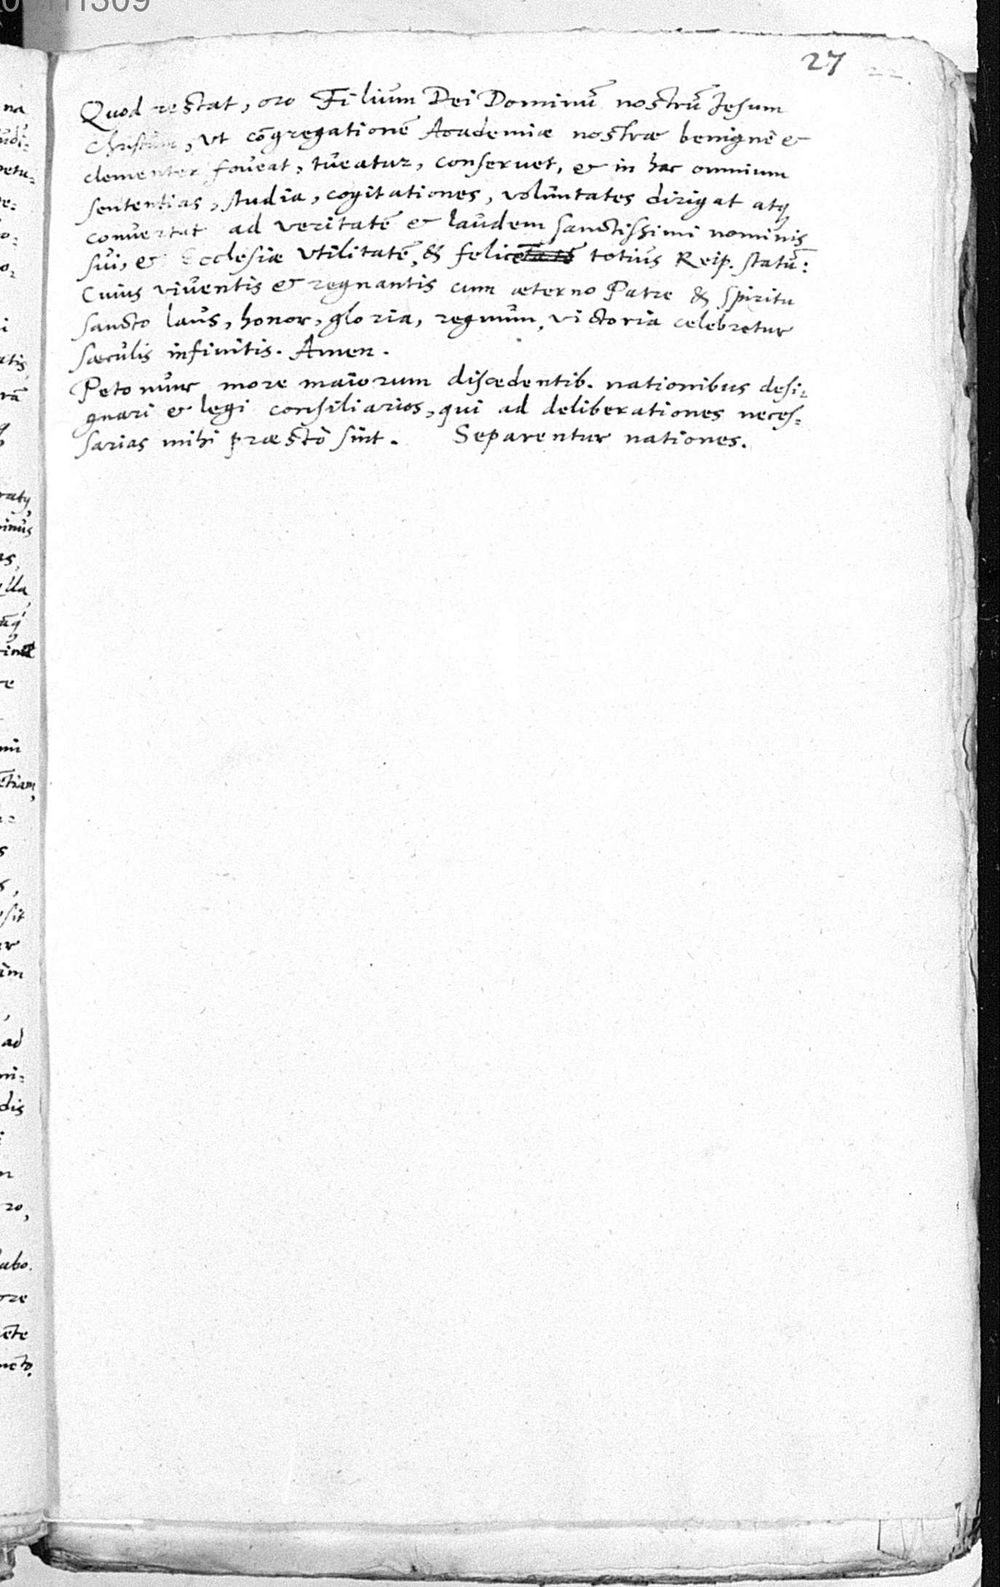 27
Quod restat, oro Filium Dei Dominū nostrū Jesum
Christum, vt cōgregationē Academiæ nostræ benignè &
clementer foveat, tueatur, conseruet, & in hac omnium
sententias, studia, cogitationes, voluntates dirigat atq;
convertat ad veritatē & laudem sanctissimi nominis
sui, & Ecclesiæ vtilitatē, & felicē totius Reip. statū:
Cuius viventis & regnantis cum æterno Patre & Spiritu
sancto laus, honor, gloria, regnum, victoria celebretur
sæculis infinitis. Amen.
Peto nunc more maiorum discedentib. nationibus desi-
gnari & legi consiliarios, qui ad deliberationes neces-
sarias mihi præstò sint. Separentur nationes.